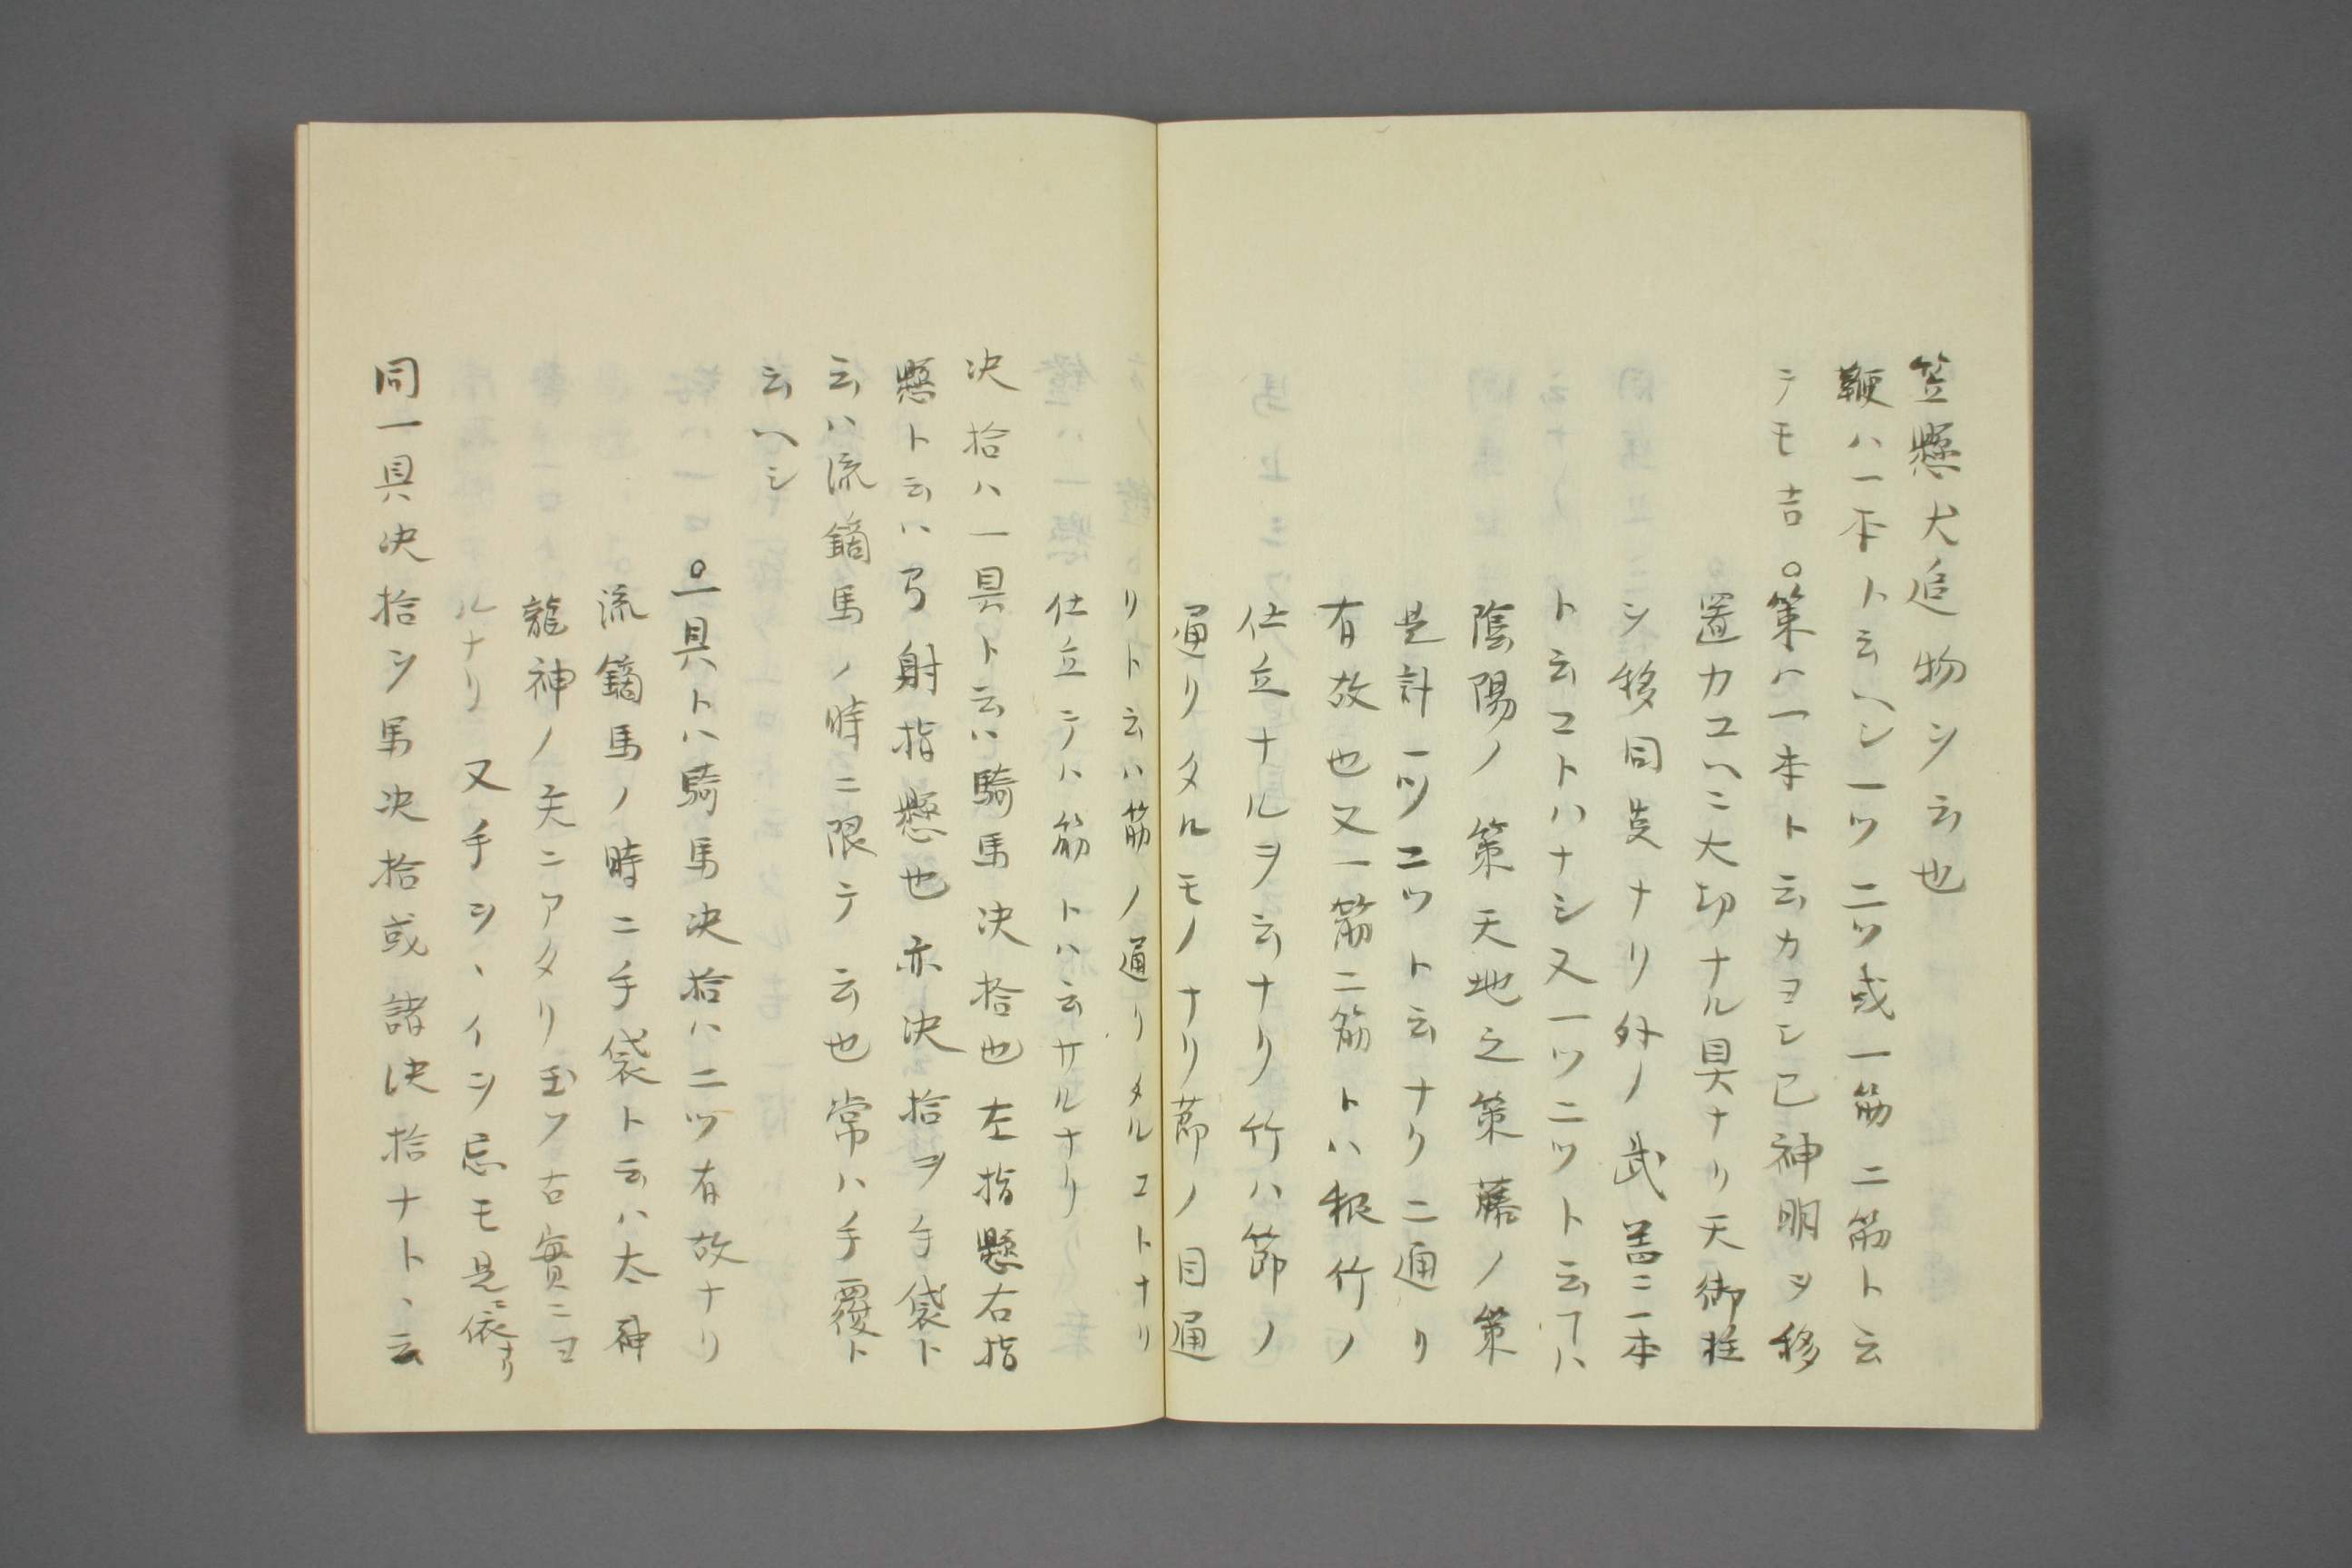 笠懸犬追物ヲ云也
鞭ハ一本ト云ヘシ一ツ二ツ或一筋二筋ト云
テモ吉。策ハ一本ト云カヨシ已神明ヲ移
置カユヘニ大切ナル具ナリ天御柱
ヲ移同支ナリ外ノ武器ニ一本
ト云コトハナシ又一ツ二ツト云ヿハ
陰陽ノ策天地之策藤ノ策
是計一ツ二ツト云ナリ二通リ
有故也又一筋二筋トハ根竹ノ
仕立ナルヲ云ナリ竹ハ節ノ
通リタルモノナリ節ノ目通
リト云ハ筋ノ通リタルコトナリ
仕立テハ筋トハ云サルナリ
决拾ハ一具ト云ハ騎馬决拾也左指懸右指
懸ト云ハ弓射指懸也亦决拾ヲ手袋ト
云ハ流鏑馬ノ時ニ限テ云也常ハ手覆ト
云ヘシ
。一具トハ騎馬决拾ハ二ツ有故ナリ
流鏑馬ノ時ニ手袋ト云ハ太神
龍神ノ矢ニアタリ玉フ古實ニヨ
ルナリ又手シヽイヲ忌モ是ニ依ナリ
同一具决拾ヲ馬决拾或諸决拾ナトヽ云